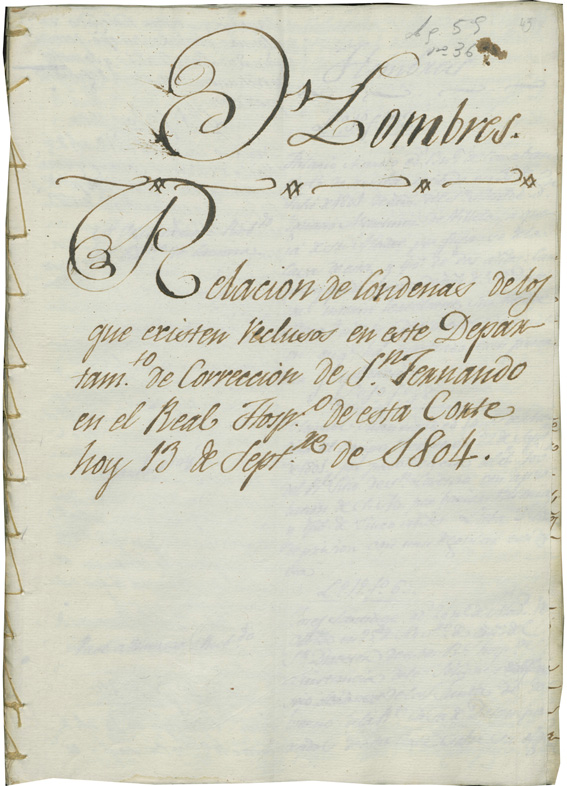 49
Lg 59
nº 36
Hombres.
Relacion de Condenas de los
que existen reclusos en este Depar-
tam.to de Correccion de S.n Fernando
en el Real Hosp.o de esta Corte
hoy 13 de Sept.re de 1804.